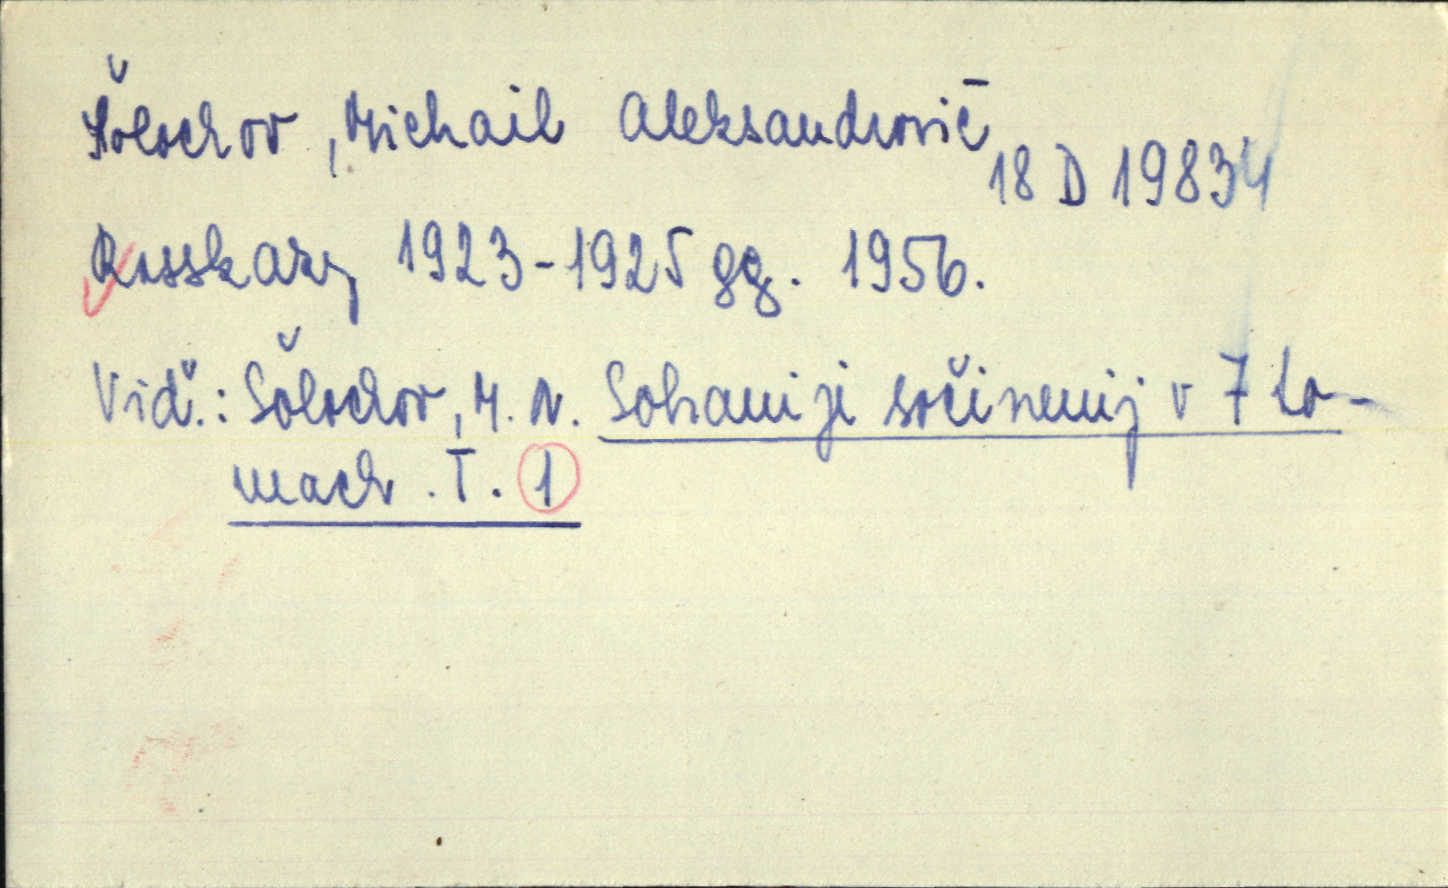 Šolochov, Michail Aleksandrovič
18 D 19834
Rasskazy 1923-1925 gg. 1956.
Viď.: Šolochov, M. A. Sobranije sočinenij v 7 to-
mach. T. 1